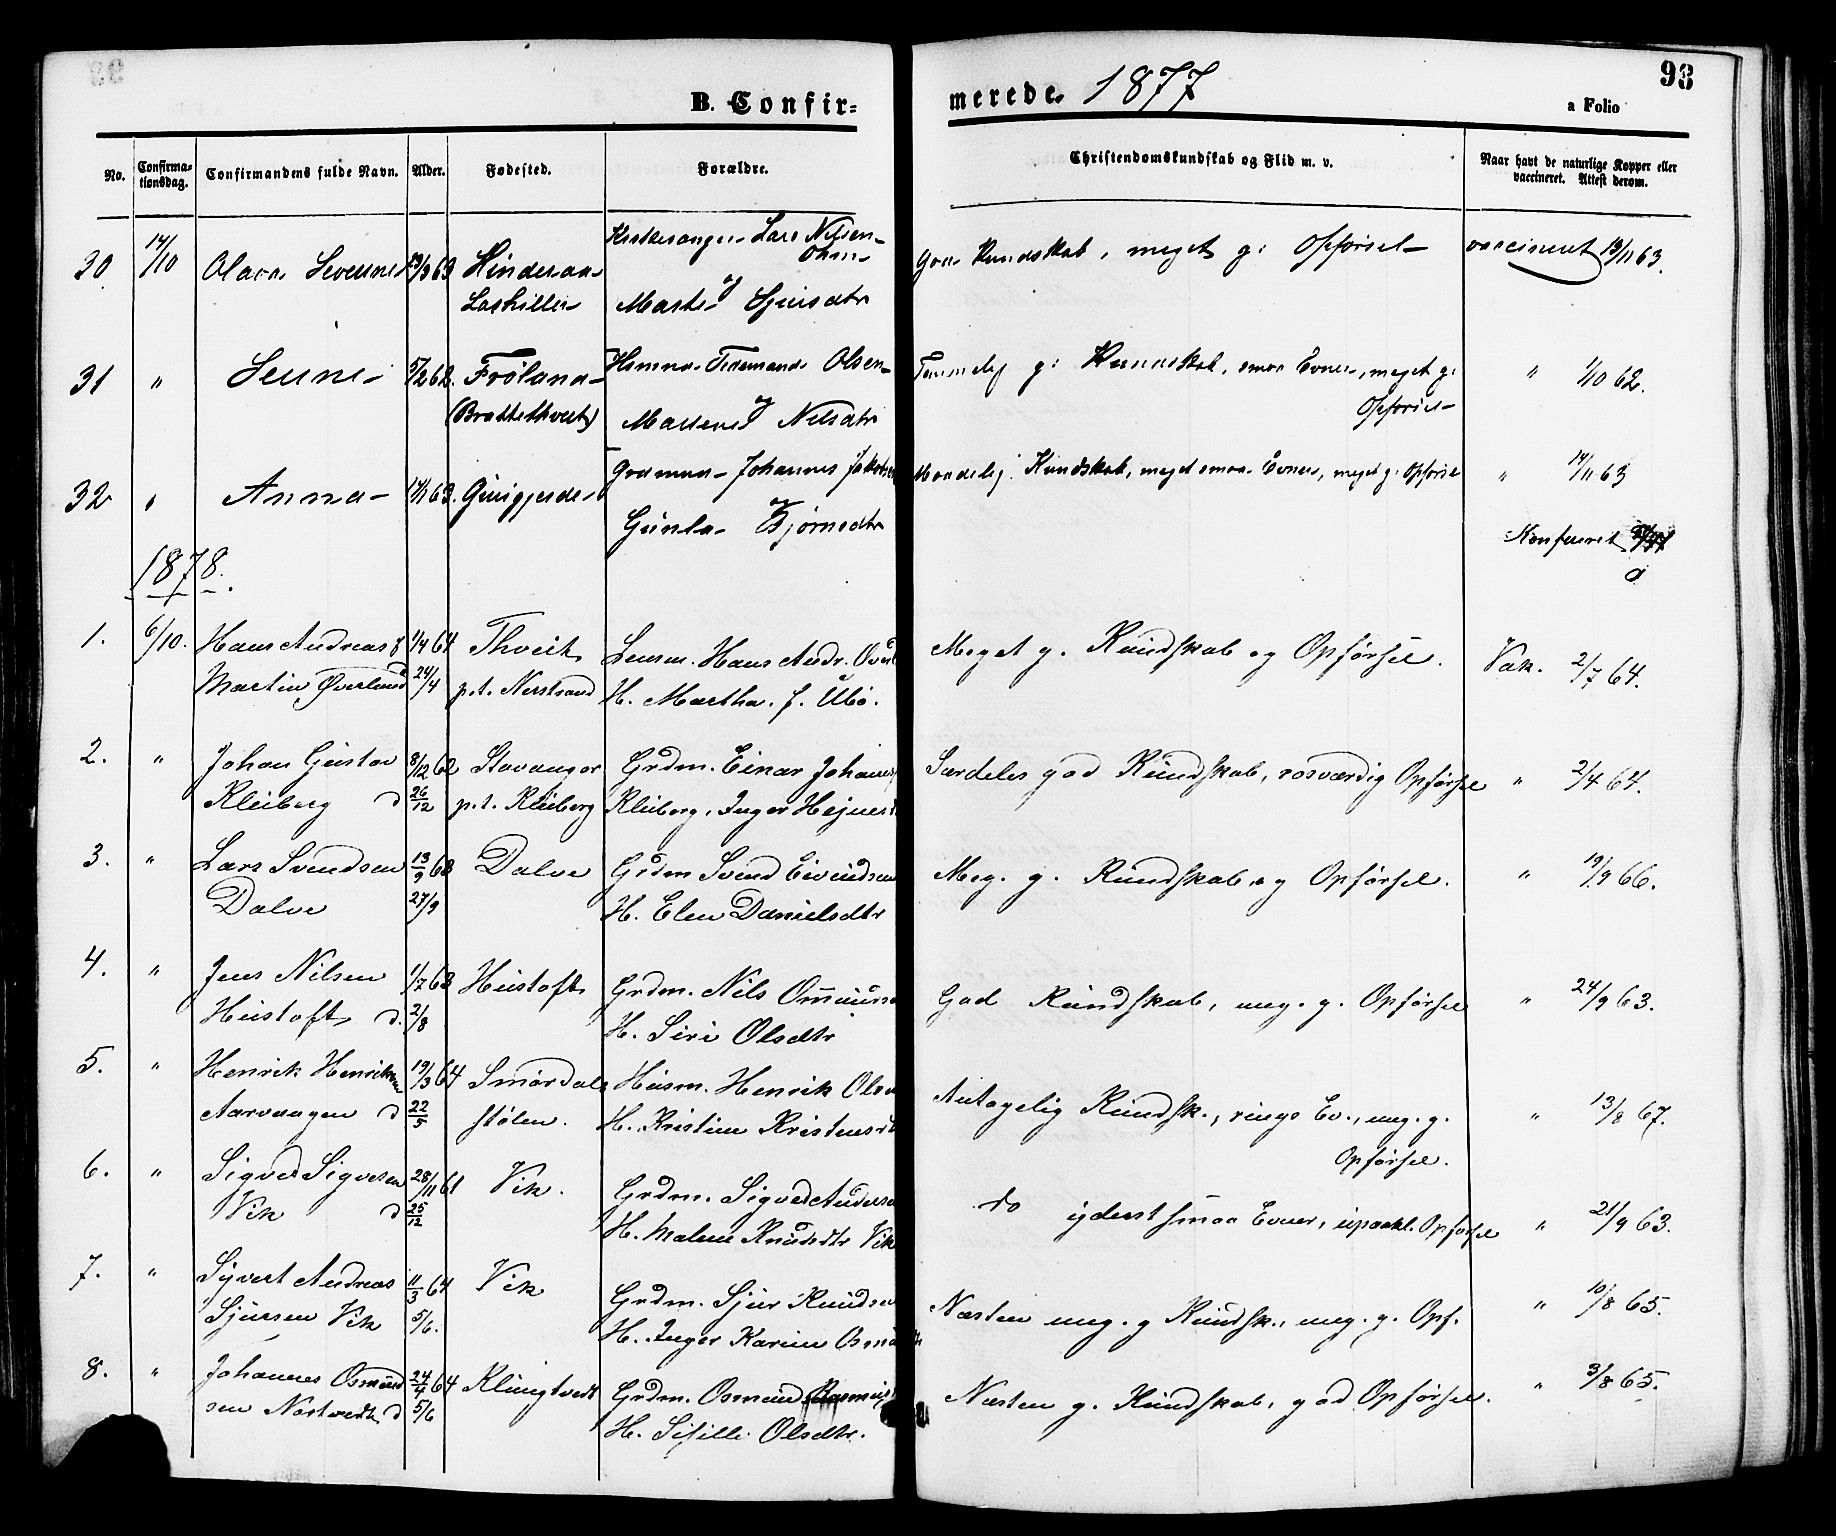 B. Confir-
merede. 1877
93
a Folio
No.
Confirma-
tionsdag.
Confirmandens fulde Navn.
Alder.
Fødested.
Forældre.
Christendomskundskab og Flid m. v.
Naar havt de naturlige Kopper eller
vaccineret. Attest derom.
30 14/10 Olava Severine 63 Hinderaa Kirkesanger Lars Nilsen God Kundskab, meget g: Opførsel vaccineret 13/11 63.
Marte
31 " 5/2 62. Frøland Tidemand Olsen Temmelig g: Kundskab, smaa Evner, meget g: " 1/10 62.
(Brattethveit) og Nilsdtr Opførsel
32 " Anna 63. Grdmand Johannes Maadelig Kundskab, meget smaa Evner, meget g: Opførsel " 14/11 63
Gunla Bjørnsdtr
1878.
1. 6/10. Hans Andreas 1/4 64 Thveit Lensm. Hans Andr. Meget g. Kundskab og Opførsel. Vak. 2/7 64.
Martin Øverland 24/4 p.t. Nerstrand H. Martha f. Ubø.
2. " Johan Gustav 8/12 62 Stavanger Grdm. Einar Særdeles god Kundskab, rosværdig Opførsel " 2/4 64.
Kleiberg d 26/12 p.t. Kleiberg Kleiberg, Inger
3. " Lars Svendsen 13/9 63 Dalve Grdm Svend Eivindsen Meg. g. Kundskab og Opførsel. " 19/9 66.
Dalve 27/9 H. Elen Danielsdtr
4. " Jens Nilsen 1/7 63 Hustoft Grdm. Nils God Kundskab, meg. g. Opførsel " 24/9 63.
Hustoft d. 2/8 H. Siri Olsdtr
5. " Henrik Henriksen 19/3 64 Smørdal Husm. Henrik Antagelig Kundsk., ringe Ev., meg. g. " 13/8 67.
Aarvaagen d 22/5 stølen. H. Kristine Opførsel.
6. " Sigved Sigvesen 28/11 61 Vik. Grdm. Sigved do yderst smaa Evner, upaakl. Opførsel " 21/9 63.
Vik d 25/12 H. Malene Knudsdtr Vik
7. " Syvert Andreas 11/3 64 Vik Grdm. Sjur Knudsen Næsten meg. g Kundsk., meg. g. Opf. " 10/8 65.
Sjursen Vik 5/6. H. Inger Karine
8. " Johannes Osmund 24/4 64 Klungtvedt Grdm. Osmund Næsten g. Kundskab, god Opførsel. " 3/8 65.
sen Nortvedt d 5/6 H. Sisille Olsdtr.